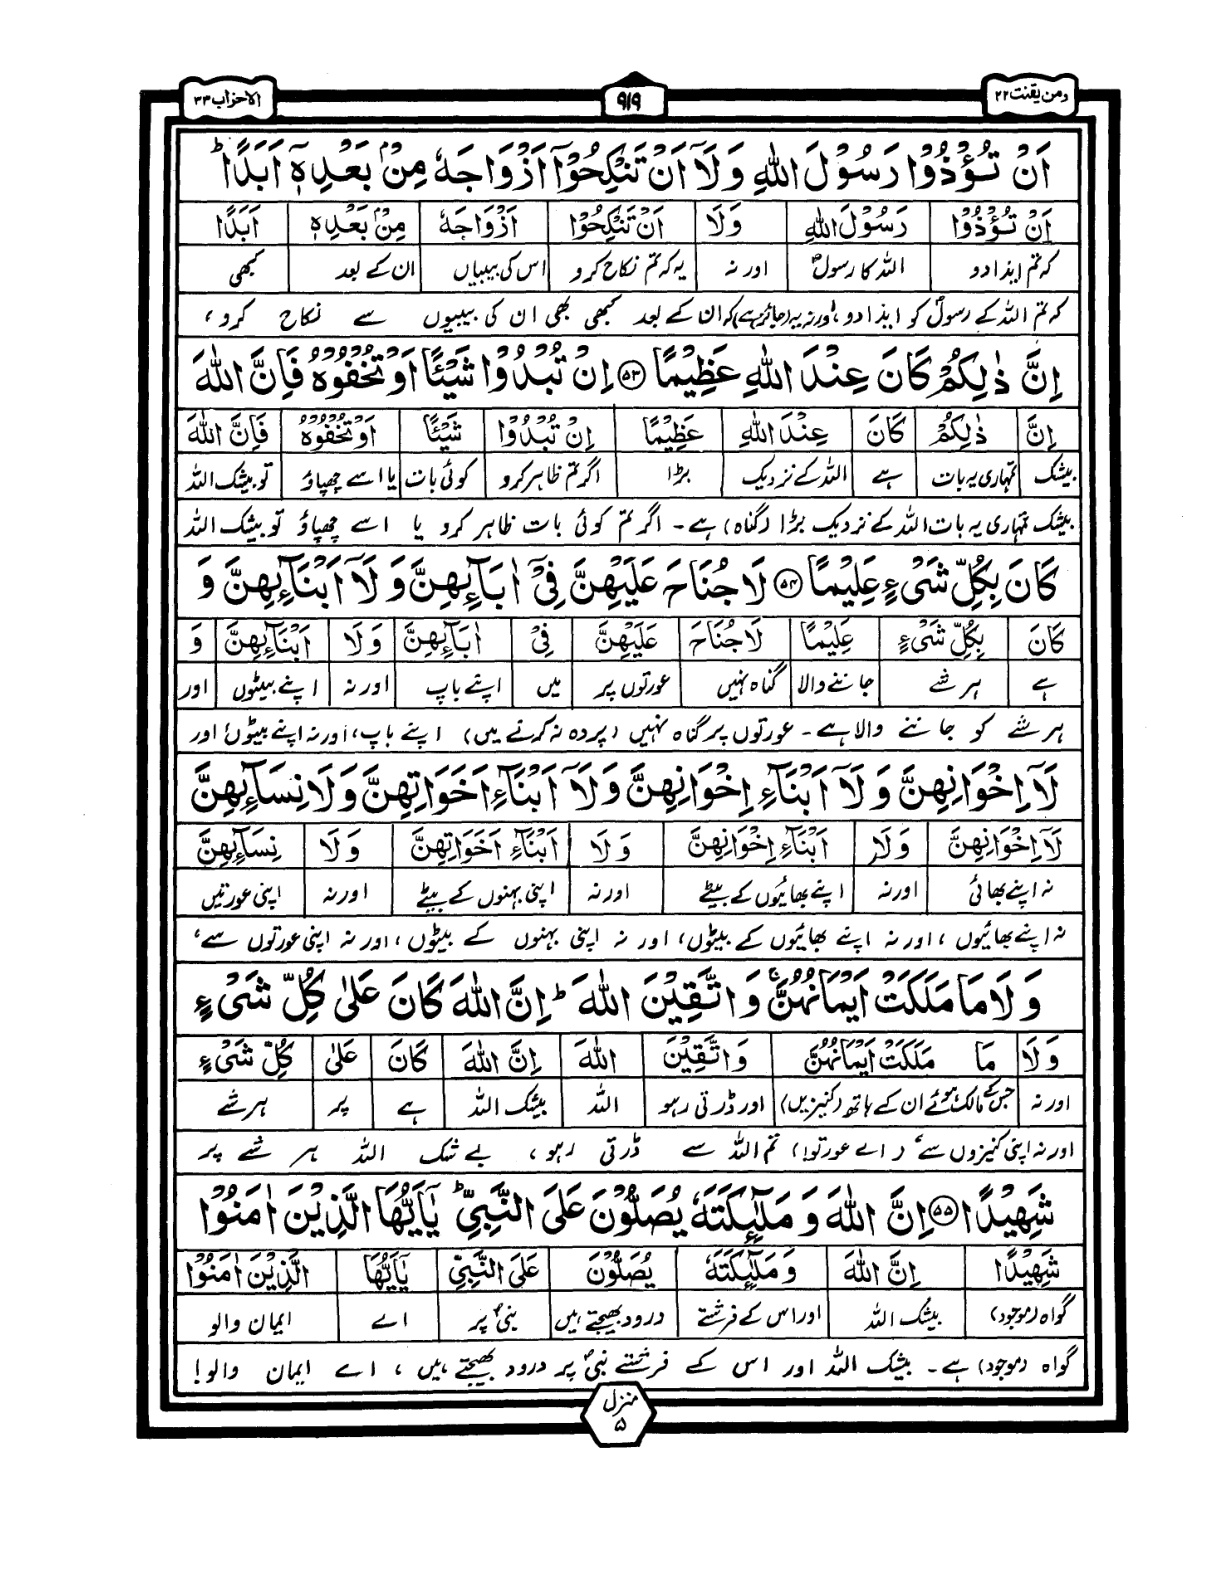 الاحزاب ۳۳
۹۱۹
ومن یقنت ۲۲
اَنْ تُؤْذُوْا رَسُوْلَ اللّٰهِ وَلَاۤ اَنْ تَنْكِحُوْۤا اَزْوَاجَهٗ مِنْۢ بَعْدِهٖۤ اَبَدًا ؕ
اَنْ تُؤْذُوْا رَسُوْلَ اللّٰهِ وَلَا اَنْ تَنْكِحُوْۤا اَزْوَاجَهٗ مِنْۢ بَعْدِهٖ اَبَدًا
کہ تم ایذا دو اللہ کا رسولؐ اور نہ یہ کہ تم نکاح کرو اس کی بیبیاں ان کے بعد کبھی
کہ تم اللہ کے رسولؐ کو ایذا دو، اور نہ یہ (جائز ہے) کہ ان کے بعد کبھی بھی ان کی بیبیوں سے نکاح کرو،
اِنَّ ذٰلِكُمْ كَانَ عِنْدَ اللّٰهِ عَظِیْمًا ﴿۵۳﴾ اِنْ تُبْدُوْا شَیْـًٔا اَوْ تُخْفُوْهُ فَاِنَّ اللّٰهَ
اِنَّ ذٰلِكُمْ كَانَ عِنْدَ اللّٰهِ عَظِیْمًا اِنْ تُبْدُوْا شَیْـًٔا اَوْ تُخْفُوْهُ فَاِنَّ اللّٰهَ
بیشک تمہاری یہ بات ہے اللہ کے نزدیک بڑا اگر تم ظاہر کرو کوئی بات یا اسے چھپاؤ تو بیشک اللہ
بیشک تمہاری یہ بات اللہ کے نزدیک بڑا (گناہ) ہے۔ اگر تم کوئی بات ظاہر کرو یا اسے چھپاؤ تو بیشک اللہ
كَانَ بِكُلِّ شَیْءٍ عَلِیْمًا ﴿۵۴﴾ لَا جُنَاحَ عَلَیْهِنَّ فِیْۤ اٰبَآىِٕهِنَّ وَ لَاۤ اَبْنَآىِٕهِنَّ وَ
كَانَ بِكُلِّ شَیْءٍ عَلِیْمًا لَا جُنَاحَ عَلَیْهِنَّ فِیْ اٰبَآىِٕهِنَّ وَ لَا اَبْنَآىِٕهِنَّ وَ
ہے ہر شے جاننے والا گناہ نہیں عورتوں پر میں اپنے باپ اور نہ اپنے بیٹوں اور
ہر شے کو جاننے والا ہے۔ عورتوں پر گناہ نہیں (پردہ نہ کرنے میں) اپنے باپ، اور نہ اپنے بیٹوں، اور
لَاۤ اِخْوَانِهِنَّ وَ لَاۤ اَبْنَآءِ اِخْوَانِهِنَّ وَ لَاۤ اَبْنَآءِ اَخَوٰتِهِنَّ وَ لَا نِسَآىِٕهِنَّ
لَاۤ اِخْوَانِهِنَّ وَ لَا اَبْنَآءِ اِخْوَانِهِنَّ وَ لَا اَبْنَآءِ اَخَوَاتِهِنَّ وَ لَا نِسَآىِٕهِنَّ
نہ اپنے بھائی اور نہ اپنے بھائیوں کے بیٹے اور نہ اپنی بہنوں کے بیٹے اور نہ اپنی عورتیں
نہ اپنے بھائیوں، اور نہ اپنے بھائیوں کے بیٹوں، اور نہ اپنی بہنوں کے بیٹوں، اور نہ اپنی عورتوں سے،
وَ لَا مَا مَلَكَتْ اَیْمَانُهُنَّ ۚ وَ اتَّقِیْنَ اللّٰهَ ؕ اِنَّ اللّٰهَ كَانَ عَلٰى كُلِّ شَیْءٍ
وَ لَا مَا مَلَكَتْ اَیْمَانُهُنَّ وَ اتَّقِیْنَ اللّٰهَ اِنَّ اللّٰهَ كَانَ عَلٰى كُلِّ شَیْءٍ
اور نہ جس کے مالک ہوئے ان کے ہاتھ (کنیزیں) اور ڈرتی رہو اللہ بیشک اللہ ہے پر ہر شے
اور نہ اپنی کنیزوں سے، (اے عورتو!) تم اللہ سے ڈرتی رہو، بے شک اللہ ہر شے پر
شَهِیْدًا ﴿۵۵﴾ اِنَّ اللّٰهَ وَ مَلٰٓىِٕكَتَهٗ یُصَلُّوْنَ عَلَى النَّبِیِّ ؕ یٰۤاَیُّهَا الَّذِیْنَ اٰمَنُوْا
شَهِیْدًا اِنَّ اللّٰهَ وَ مَلٰٓىِٕكَتَهٗ یُصَلُّوْنَ عَلَى النَّبِیِّ یٰۤاَیُّهَا الَّذِیْنَ اٰمَنُوْا
گواہ (موجود) بیشک اللہ اور اس کے فرشتے درود بھیجتے ہیں نبیؐ پر اے ایمان والو
گواہ (موجود) ہے۔ بیشک اللہ اور اس کے فرشتے نبیؐ پر درود بھیجتے ہیں، اے ایمان والو!
منزل
۵